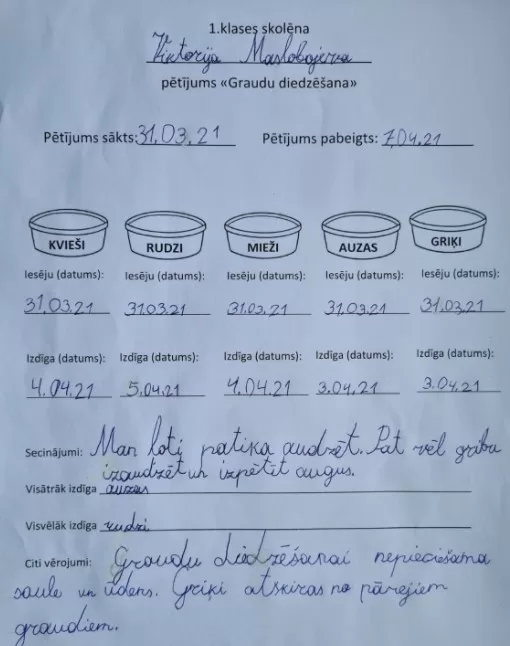 1.klases skolēna
Viktorija Maslobojeva
pētījums «Graudu diedzēšana»
Pētījums sākts: 31.03.21 Pētījums pabeigts: 7.04.21
KVIEŠI RUDZI MIEŽI AUZAS GRIĶI
Iesēju (datums): Iesēju (datums): Iesēju (datums): Iesēju (datums): Iesēju (datums):
31.03.21 31.03.21 31.03.21 31.03.21 31.03.21
Izdīga (datums): Izdīga (datums): Izdīga (datums): Izdīga (datums): Izdīga (datums):
4.04.21 5.04.21 4.04.21 3.04.21 3.04.21
Secinājumi: Man ļoti patika audzēt. Pat vēl gribu
izaudzēt un izpētīt augus.
Visātrāk izdīga auzas
Visvēlāk izdīga rudzi
Citi vērojumi: Graudu diedzēšanai nepieciešama
saule un ūdens. Griķi atšķiras no pārējiem
graudiem.